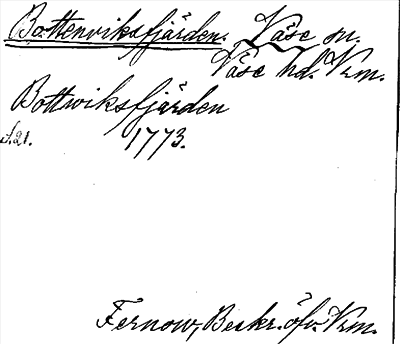 Bottenviksfjärden. Väse sn.
Väse hd. Vrm.
Bottwiksfjärden
s. 21. 1773.
Fernow, Beskr. öfv. Vrm.